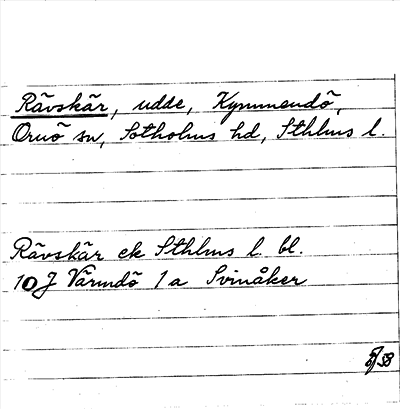 Rävskär, udde, Kymmendö,
Ornö sn, Sotholms hd, Sthlms l.
Rävskär ek Sthlms l. bl.
10 J Värmdö 1 a Svinåker